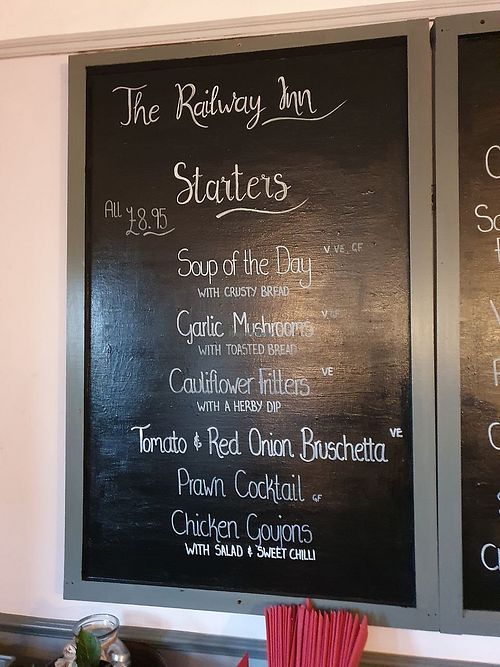 The Railway Inn
Starters
ALL £8.95
Soup of the Day V VE, GF
WITH CRUSTY BREAD
Garlic Mushrooms V GF
WITH TOASTED BREAD
Cauliflower Fritters VE
WITH A HERBY DIP
Tomato & Red Onion Bruschetta VE
Prawn Cocktail GF
Chicken Goujons
WITH SALAD & SWEET CHILLI